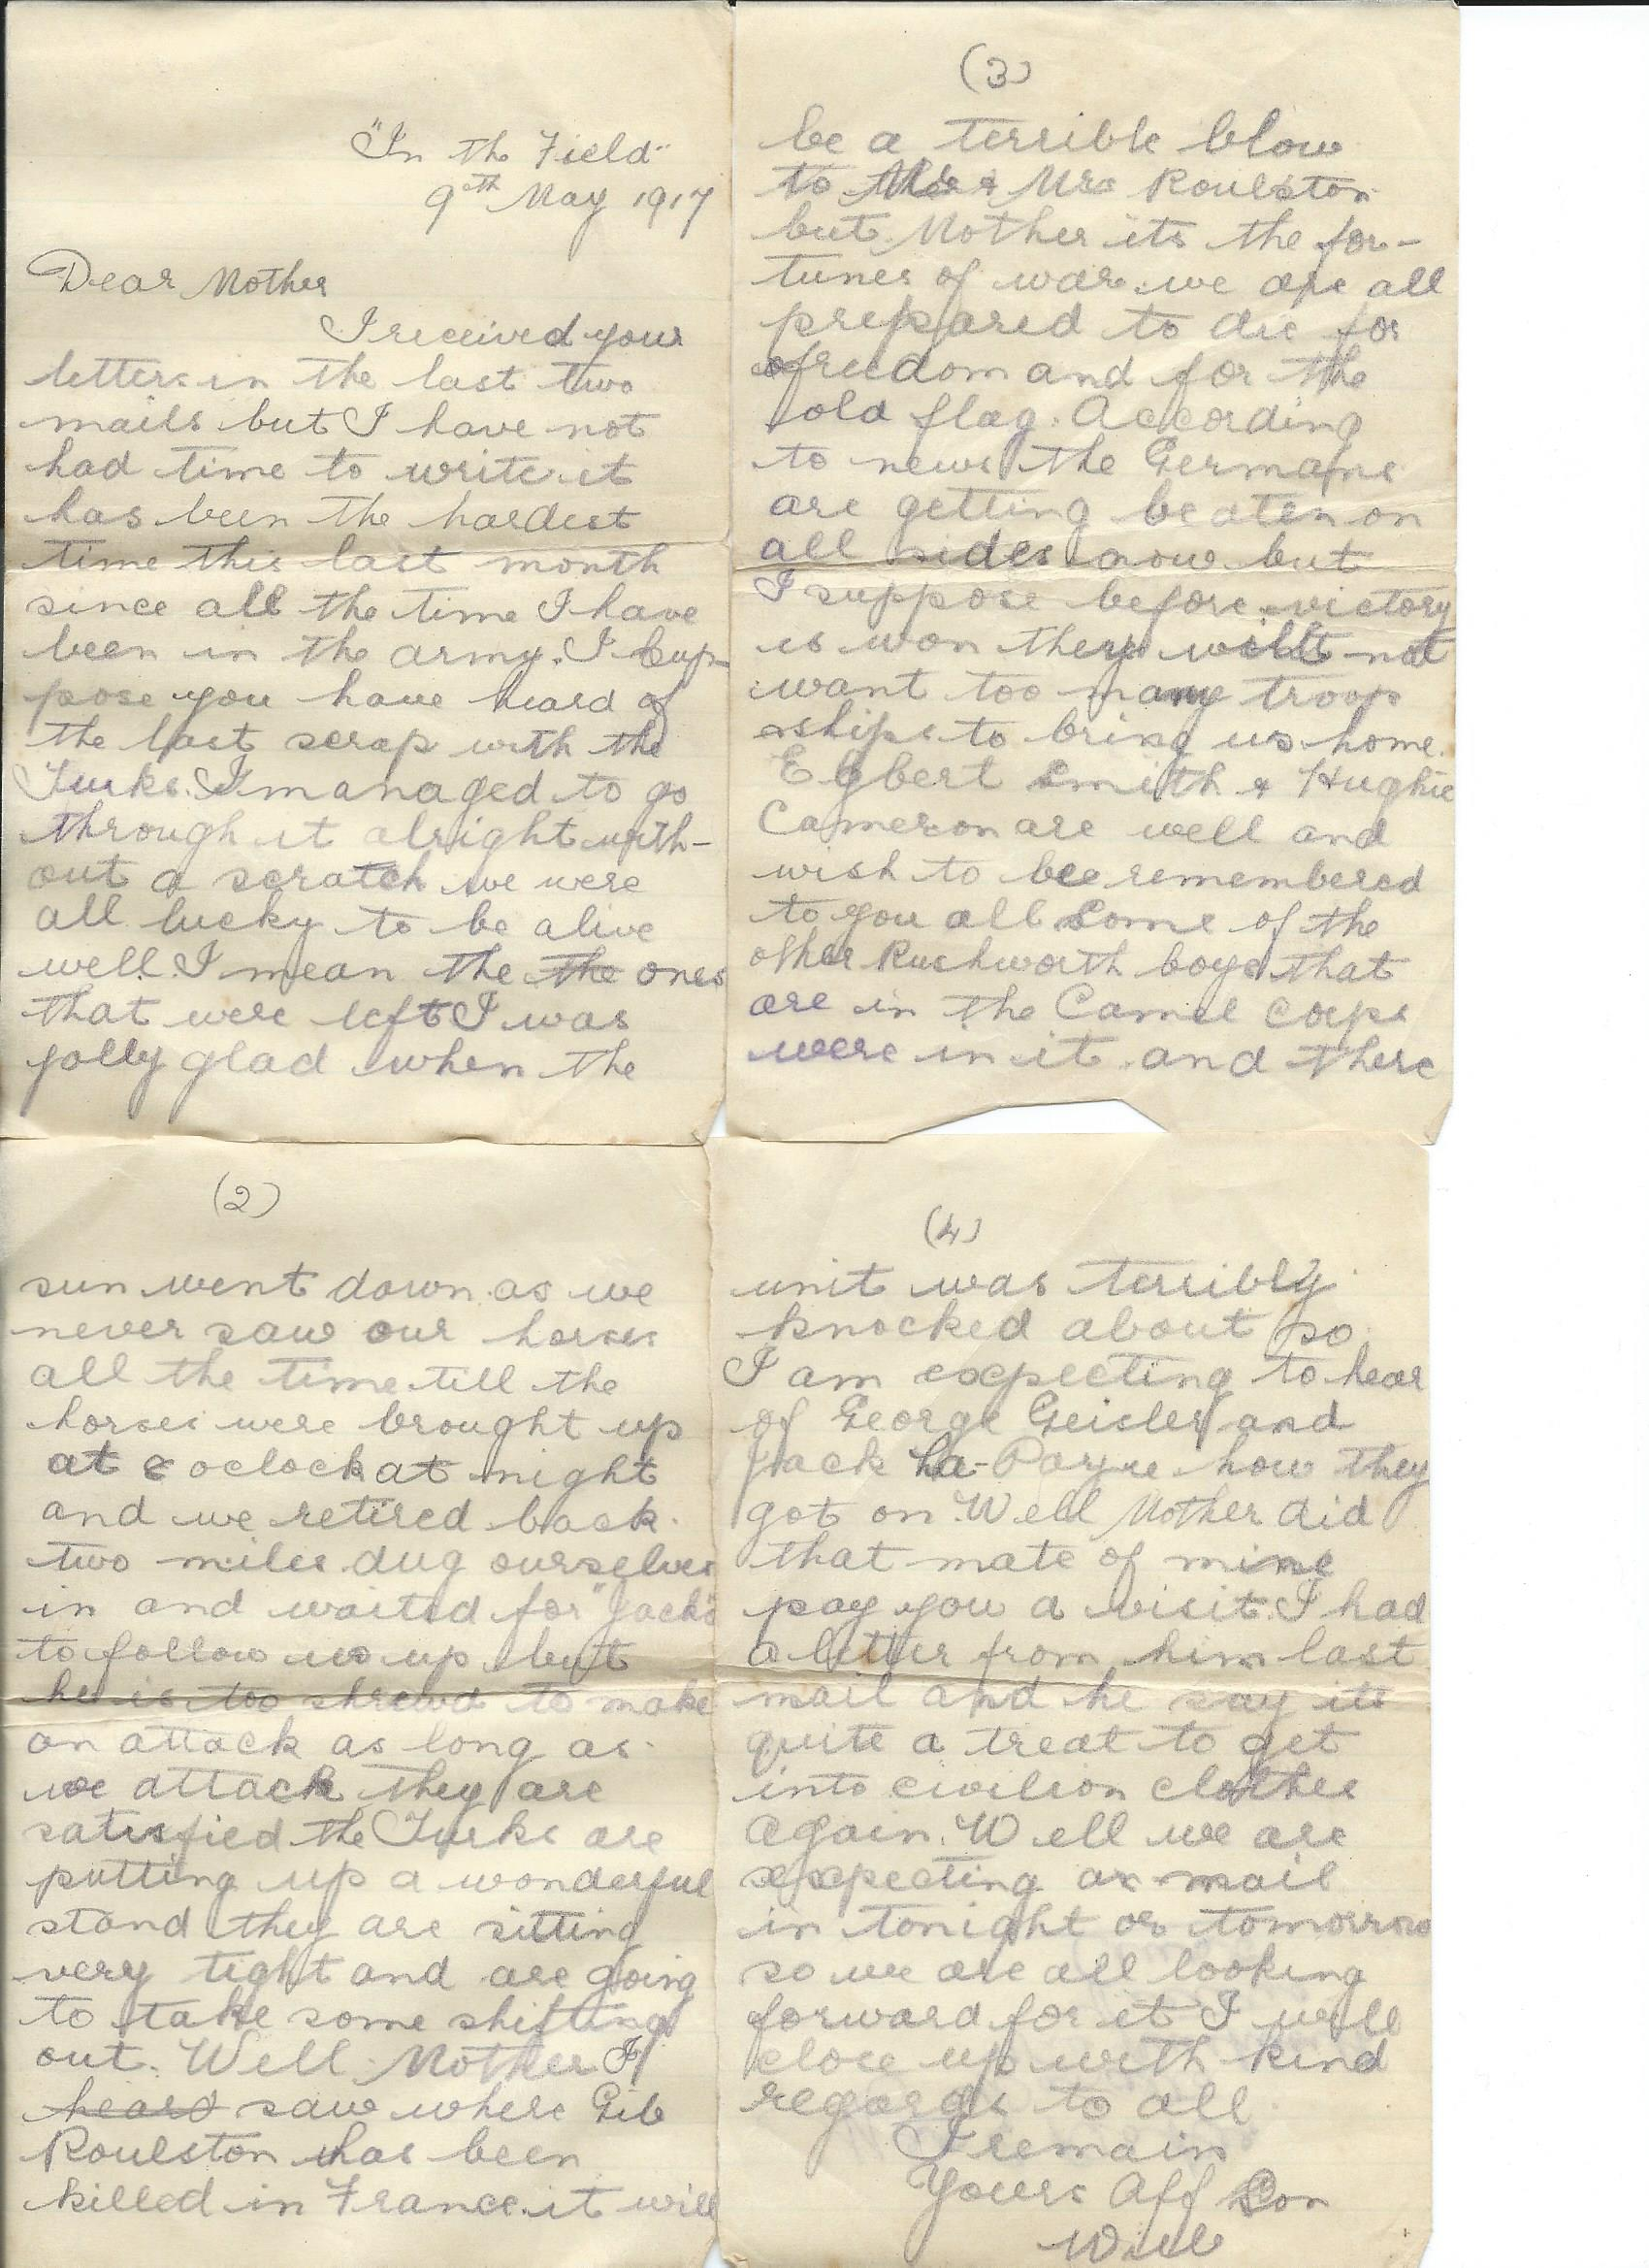 "In the Field"
9th May 1917
Dear Mother
I received your
letters in the last two
mails but I have not
had time to write it
has been the hardest
time this last month
since all the time I have
been in the army. I sup-
pose you have heard of
the last scrap with the
Turks. I managed to go
through it alright with-
out a scratch we were
all lucky to be alive
well. I mean the the ones
that were left I was
jolly glad when the
(2)
sun went down as we
never saw our horses
all the time till the
horses were brought up
at 8 oclock at night
and we retired back
two miles dug ourselves
in and waited for "Jacko"
to follow us up but
he is too shrewd to make
an attack as long as
we attack they are
satisfied the Turks are
putting up a wonderful
stand they are sitting
very tight and are going
to take some shifting
out. Well Mother I
heard saw where Gib
Roulston has been
killed in France. it will
(3)
be a terrible blow
to Mr & Mrs Roulston
but Mother its the for-
tunes of war. we are all
prepared to die for
freedom and for the
old flag. According
to news the Germans
are getting beaten on
all sides now but
I suppose before victory
is won they will not
want too many troop
ships to bring us home.
Egbert Smith & Hughie
Cameron are well and
wish to be remembered
to you all Some of the
other Rushworth boys that
are in the Camel Corps
were in it and there
(4)
unit was terribly
knocked about so
I am expecting to hear
of George Geisler and
Jack La-Payre how they
got on. Well Mother did
that mate of mine
pay you a visit. I had
a letter from him last
mail and he say its
quite a treat to get
into civilion clothes
again. Well we are
expecting a mail
in tonight or tomorrow
so we are all looking
forward for it I will
close up with kind
regards to all
I remain
Yours Aff Son
Will